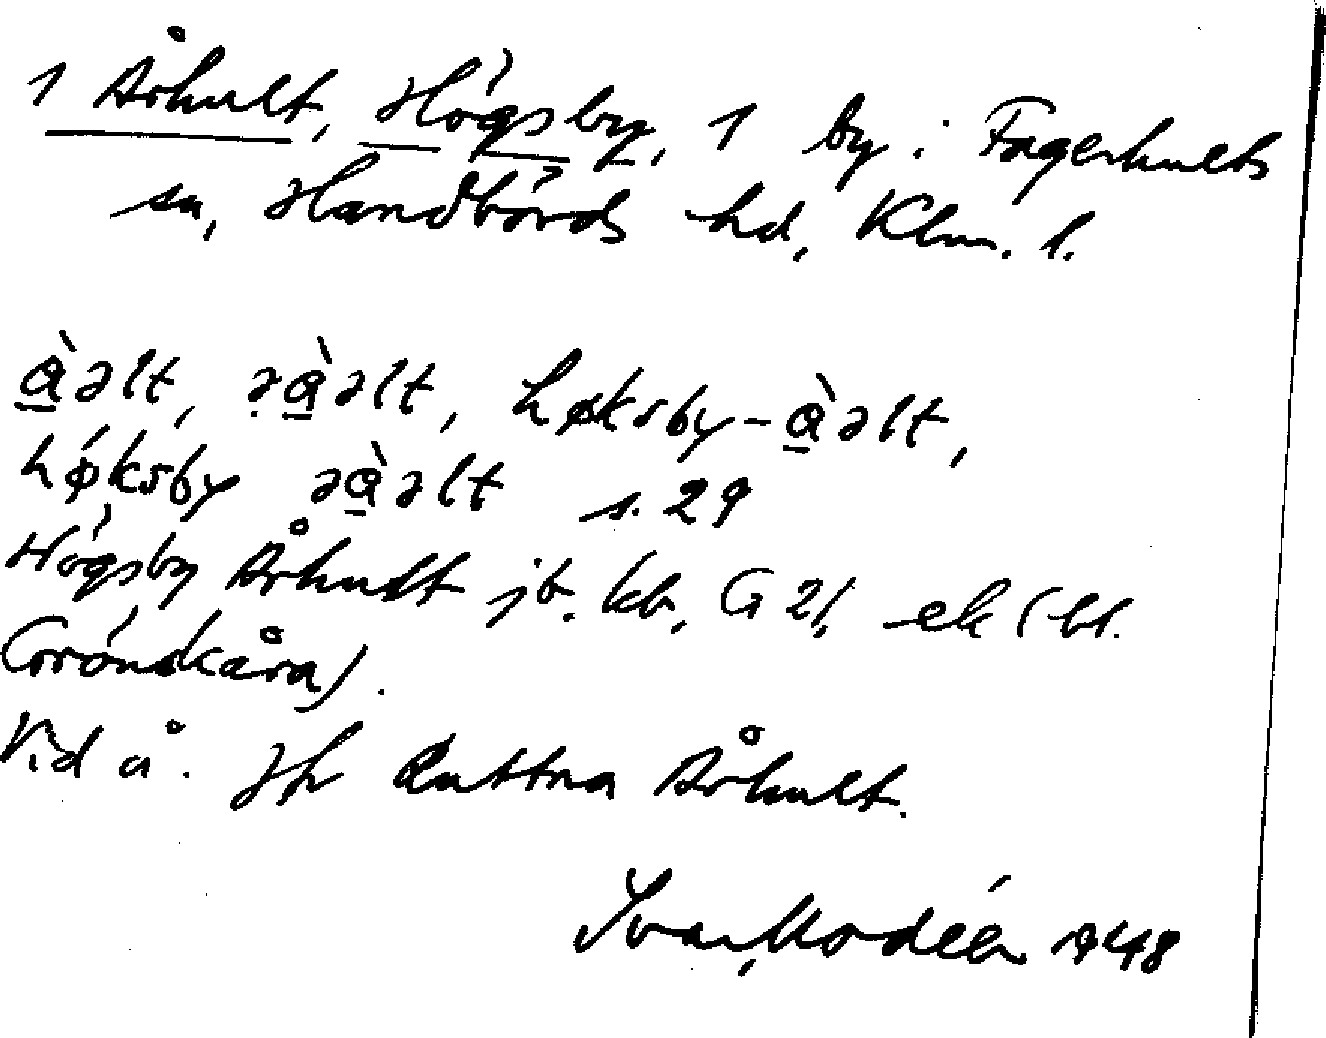 1 Århult, Högsby, 1 by i Fagerhults
sn, Handbörds hd, Klm. l.
à̱əlt, rà̱əlt, høksby-à̱əlt,
høksby rà̱əlt s. 29
Högsby Århult jb. kb, G 21, ek (bl.
Grönskåra).
Vid å. Jfr Ruttna Århult.
Ivar Modéer 1948